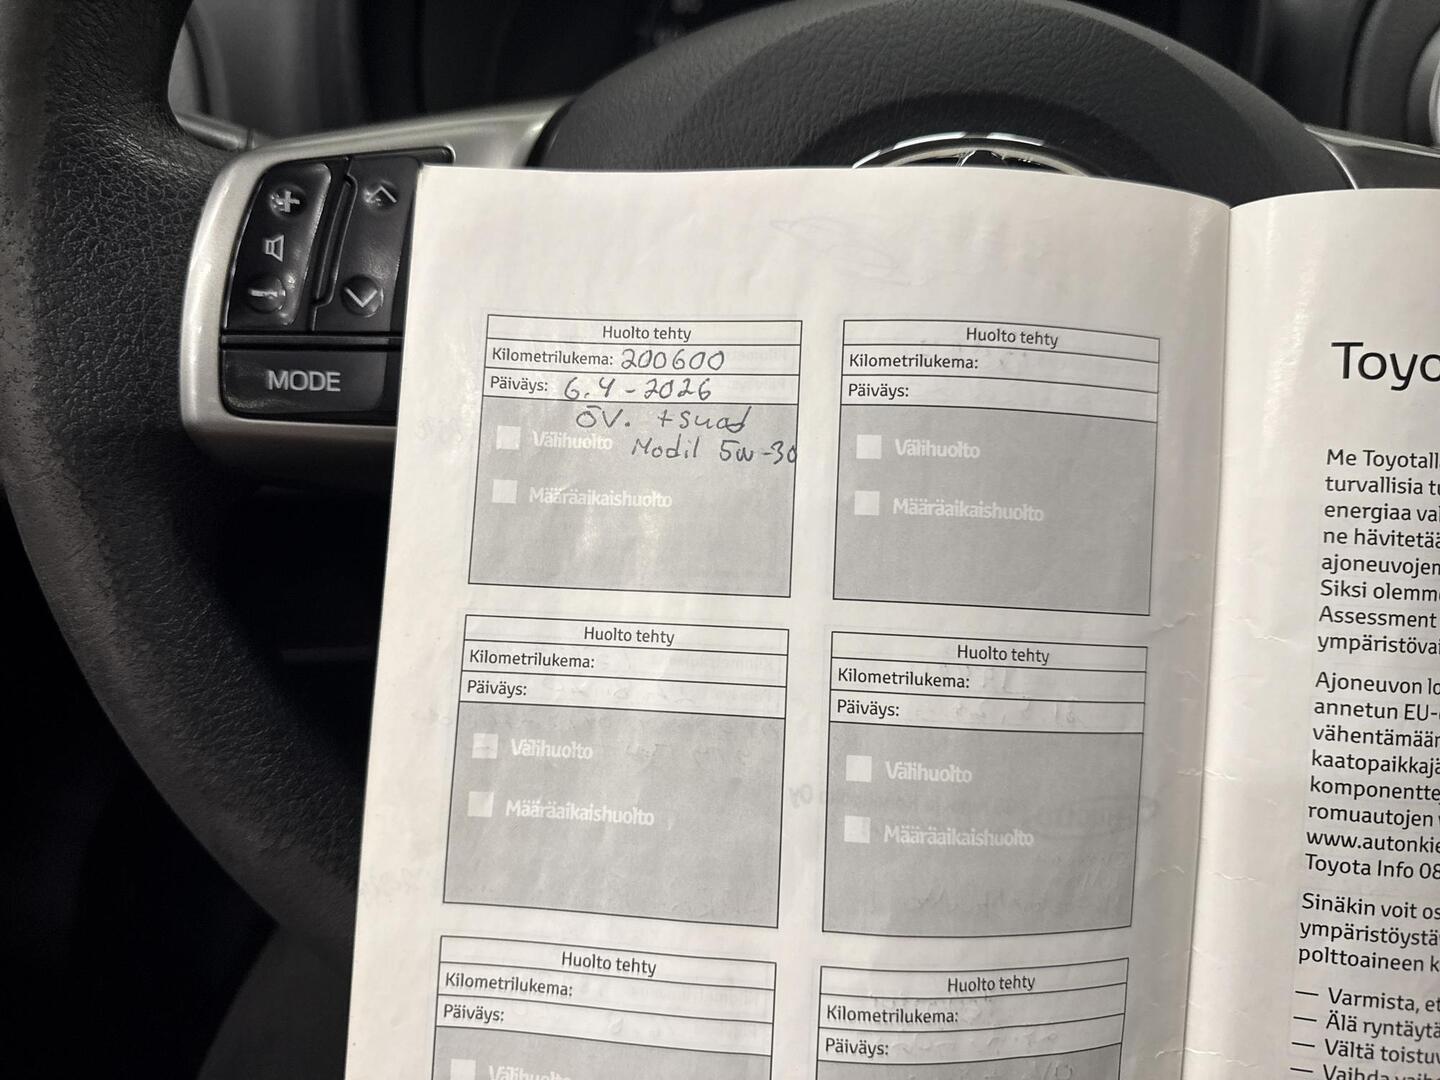 MODE
Huolto tehty
Kilometrilukema: 200600
Päiväys: 6.4-2026
ÖV. + suod
Välihuolto Modil 5w-30
Määräaikaishuolto
Huolto tehty
Kilometrilukema:
Päiväys:
Välihuolto
Määräaikaishuolto
Huolto tehty
Kilometrilukema:
Päiväys:
Välihuolto
Määräaikaishuolto
Huolto tehty
Kilometrilukema:
Päiväys:
Välihuolto
Määräaikaishuolto
Huolto tehty
Kilometrilukema:
Päiväys:
Välihuolto
Huolto tehty
Kilometrilukema:
Päiväys:
Toyo
Me Toyotall
turvallisia tu
energiaa val
ne hävitetää
ajoneuvojen
Siksi olemme
Assessment
ympäristövai
Ajoneuvon lo
annetun EU-
vähentämään
kaatopaikkajä
komponentte
romuautojen
www.autonkie
Toyota Info 08
Sinäkin voit os
ympäristöystä
polttoaineen k
— Varmista, et
— Älä ryntäytä
— Vältä toistuv
— Vaihda